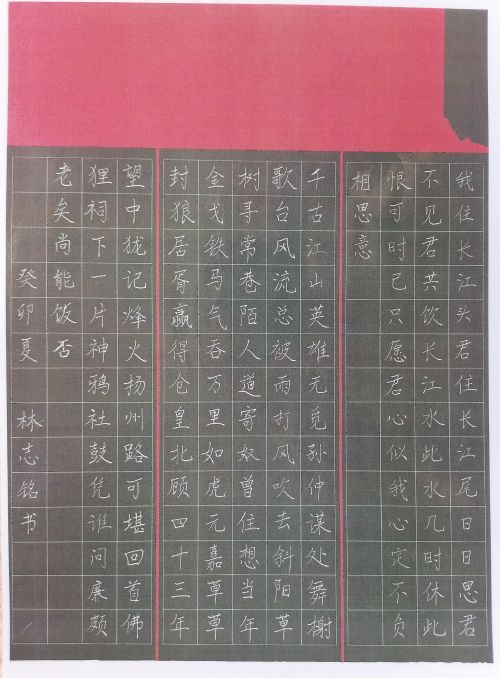 我住长江头君住长江尾日日思君
不见君共饮长江水此水几时休此
恨可时已只愿君心似我心定不负
相思意
千古江山英雄无觅孙仲谋处舞榭
歌台风流总被雨打风吹去斜阳草
树寻常巷陌人道寄奴曾住想当年
金戈铁马气吞万里如虎元嘉草草
封狼居胥赢得仓皇北顾四十三年
望中犹记烽火扬州路可堪回首佛
狸祠下一片神鸦社鼓凭谁问廉颇
老矣尚能饭否
癸卯夏 林志铭书